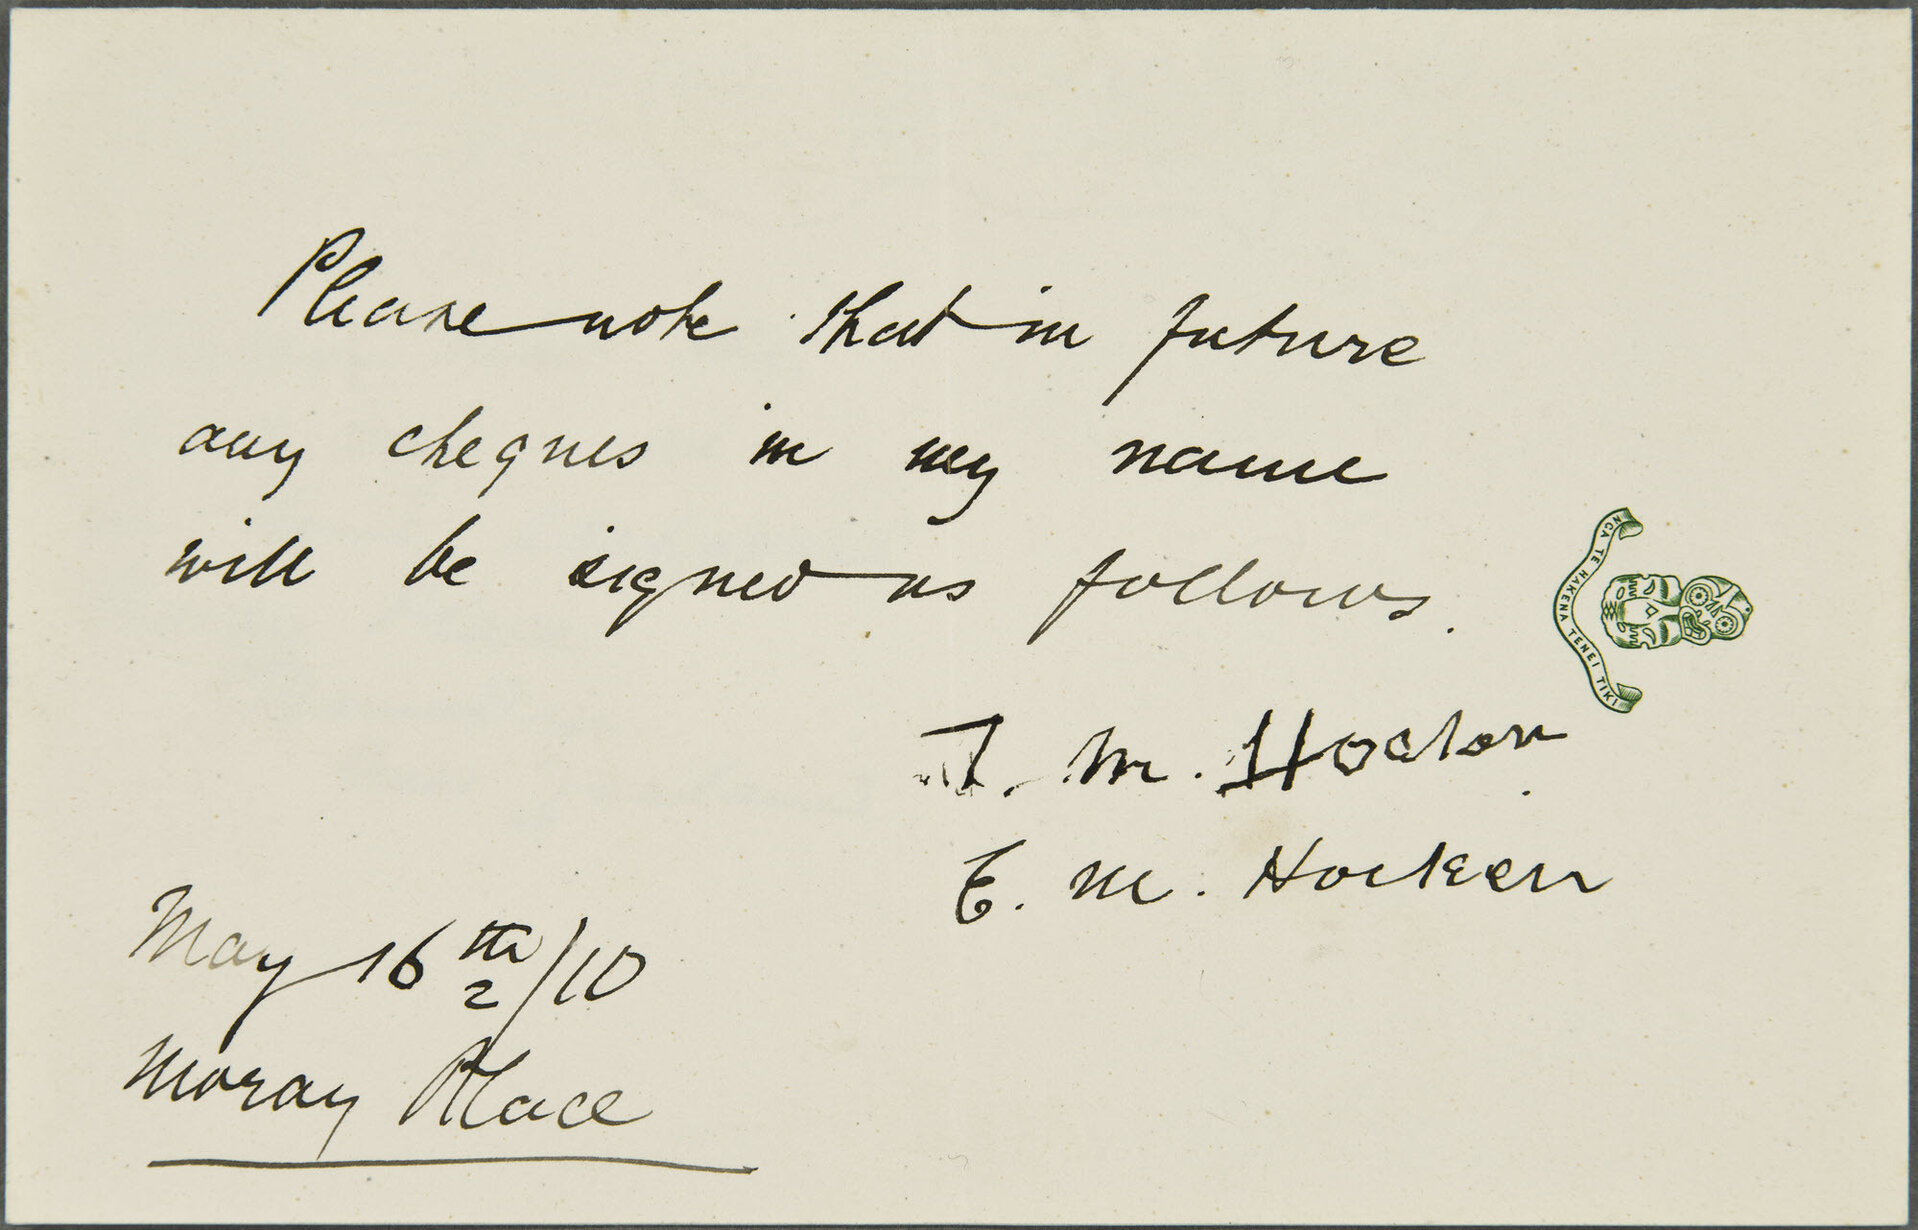 Please note that in future
any cheques in my name
will be signed as follows.
NGA TE HAKENA TENEI TIKI
T. M. Hocken
E. M. Hocken
May 16th/10
Moray Place